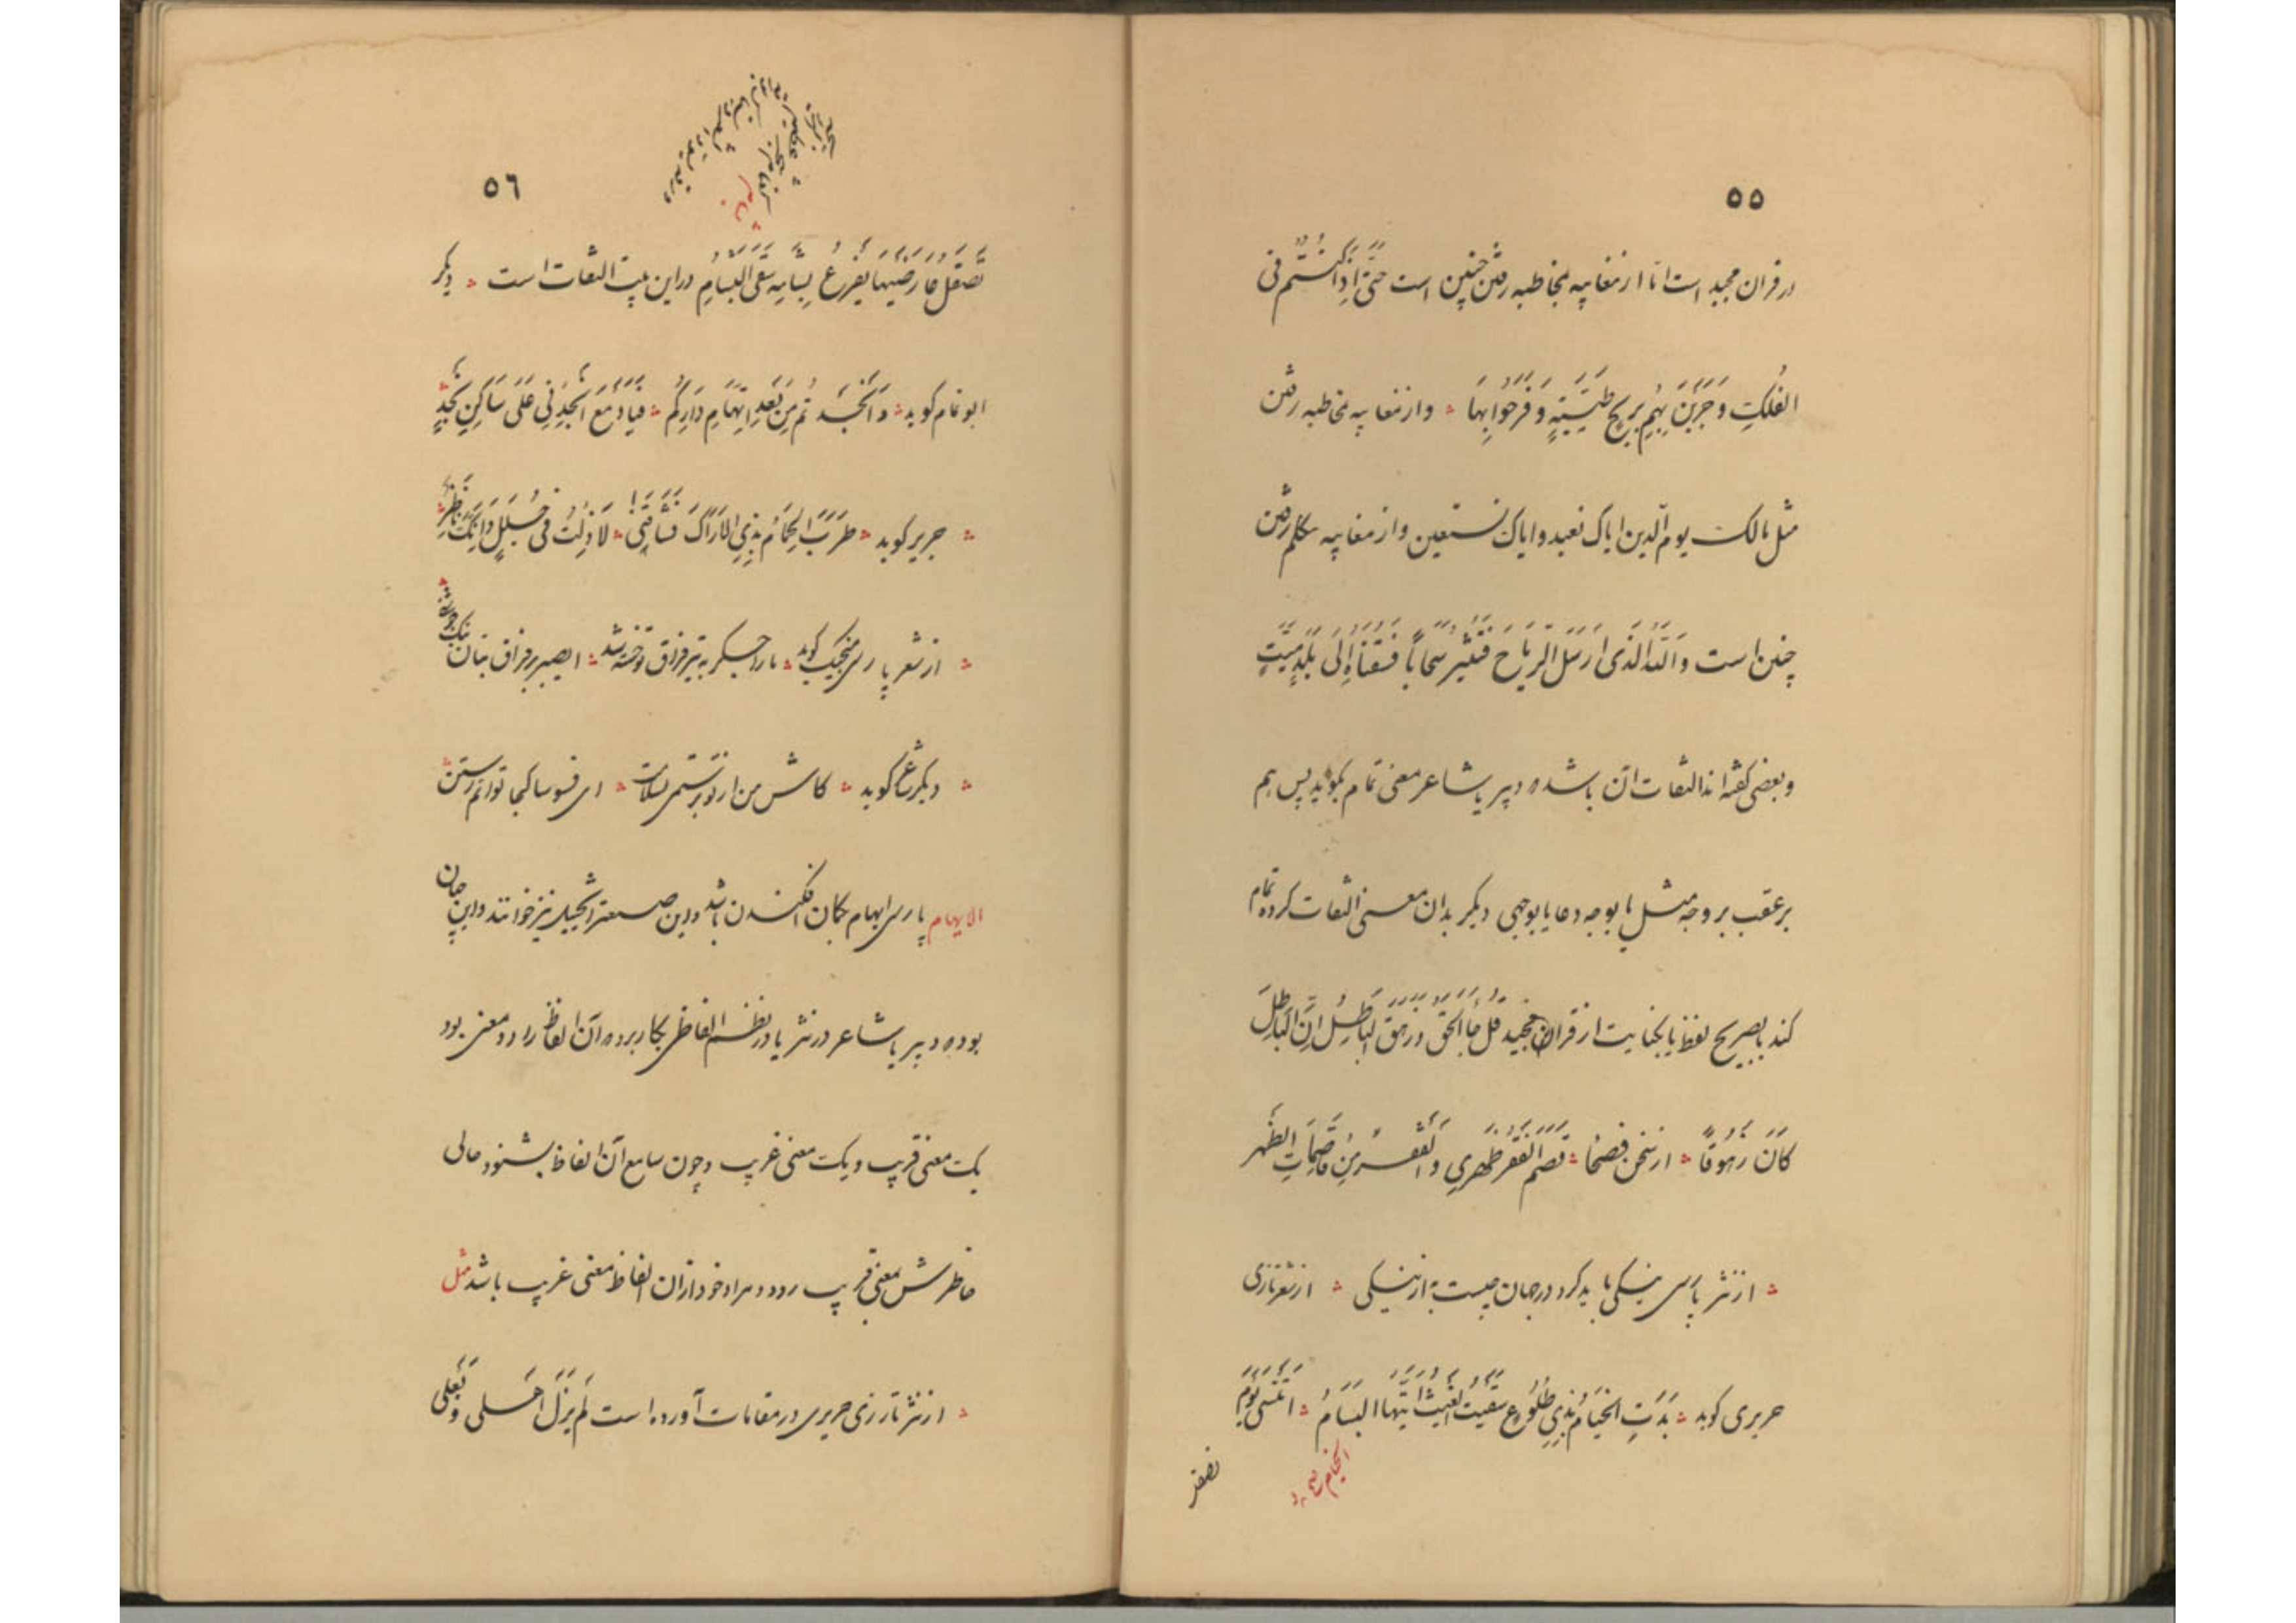 ٥٥
در قران مجید است اما از مغایبه بمخاطبه رفتن چنین است حَتّیَ اِذَا کُنْتُم فی
الفُلکِ وَ جَرَیْنَ بِهِم بِرِیحٍ طَیِّبَةٍ وَ فَرِحُوا بِهَا ؞ و از مغایبه بمخاطبه رفتن
مثل مالک یوم الّدین ایاک نعبد و ایاک نستعین و از مغایبه بمتکلم رفتن
چنین است و اَللهُ الَّذی اَرسَلَ الرِّیاحَ فَتُثیرُ سَحاباً فَسُقناهُ اِلَی بَلَدٍ مَیِّتٍ
و بعضی کفته اند التفات ان باشد که دبیر یا شاعر معنی تمام بکوید پس هم
بر عقب بر وجه مثل یا بوجه دعا یا بوجهی دیکر بدان معنی التفات کرده تمام
کند یا بصریح لفظ یا بکنایت از قران مجید قُل جاءَ الحَقُّ وَ زَهَقَ الباطِلُ اِنَّ الباطِلَ
کَانَ زَهُوقًا ؞ از سخن فصحا ؞ قَصَمَ الفَقْرُ ظَهْرِی وَ الفَقْرُ مِن قَاصِمَاتِ الظَّهر
؞ از نثر پارسی نیکی باید کرد در جهان چیست به از نیکی ؞ از شعر تازی
حریری کوید ؞ بَدَتِ الخِیَامُ بِذِی طُلُوحٍ سُقِیتِ الغَیثَ اَیَّتُهَا الخیَامُ ؞ اَتَنْسَی یَوْمَ
الخیام صح
تصقل
٥٦
تَصْقُلُ عَارِضَیهَا بِفَرعِ بَشَامَةٍ سُقِیَ البَشَامُ در این بیت التفات است ؞ دیکر
ابو تمام کوید ؞ وَ اَنْجَدْتُم مِن بَعدِ اِتهَامِ دَارِکُم ؞ فَیَا دَمعُ اَنجِدنِی عَلَی سَاکِنِی نَجدِ
؞ جریر کوید ؞ طَرِبَ الحَمَامُ بِذِی الاَرَاکِ فَشَاقَنِی ؞ لَازِلتَ فی غَلَلٍ وَ اَیکٍ نَاضِرِ
؞ از شعر پارسی منجیک کوید ؞ ما را جکر به تیر فراق تو خسته شد ؞ ای صبر بر فراق بتان نیک جوشنی
؞ دیکر شاعر کوید ؞ کاش من از تو برستمی بسلامت ؞ ای فسوسا کجا توانم رستن
الایهام پارسی ایهام بکان افکندن باشد و این صنعت را تخییل نیز خوانند و این چنان
بود که دبیر یا شاعر در نثر یا در نظم الفاظی بکار برد که آن الفاظ را دو معنی بود
یک معنی قریب و یک معنی غریب و چون سامع آن الفاظ بشنود حالی
خاطرش بمعنی قریب رود و مراد خود از آن الفاظ معنی غریب باشد مثل
؞ از نثر تازی حریری در مقامات آورده است لَم یَزَل اَهلی وَ بَعلی